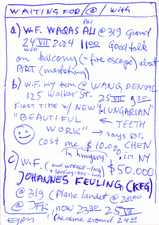 WAITING FOR/@/with
ALI
a) W.F. WAQAS ALI @ 319 grand
24 VII 2024 11:00 Good talk
on balcony (= fire escape) about
ART (marketing)
b) W.F. my team @ WANG, DENTAL
125 Walker St. 25 VII 9:30
FIRST TIME W/ NEW HUNGARIAN
"BEAUTIFUL TEETH
WORK" → says Dr.
cost me $10.000 CHEN
in Hungary, in NY
c) W.F. $50.000
JOHANNES FEULING (KFG)
@ 319 (Plane landet @ 2000
@ JFK now 2230 25 VII
he came around 24